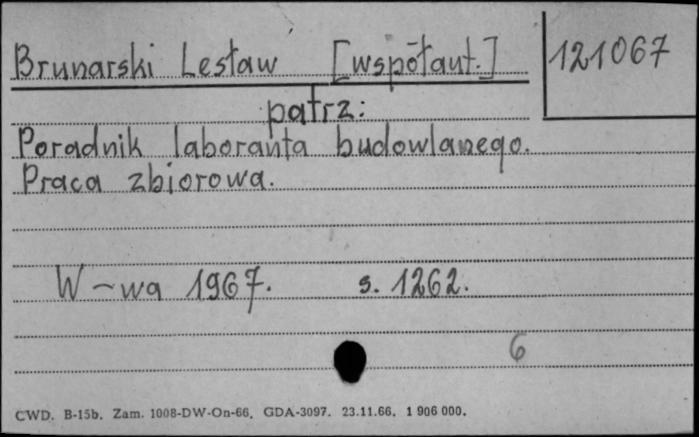 Brunarski Lesław [współaut.]
121067
patrz:
Poradnik laboranta budowlanego.
Praca zbiorowa.
W-wa 1967. s. 1262.
6
CWD. B-15b. Zam. 1008-DW-On-66. GDA-3097. 23.11.66. 1 906 000.